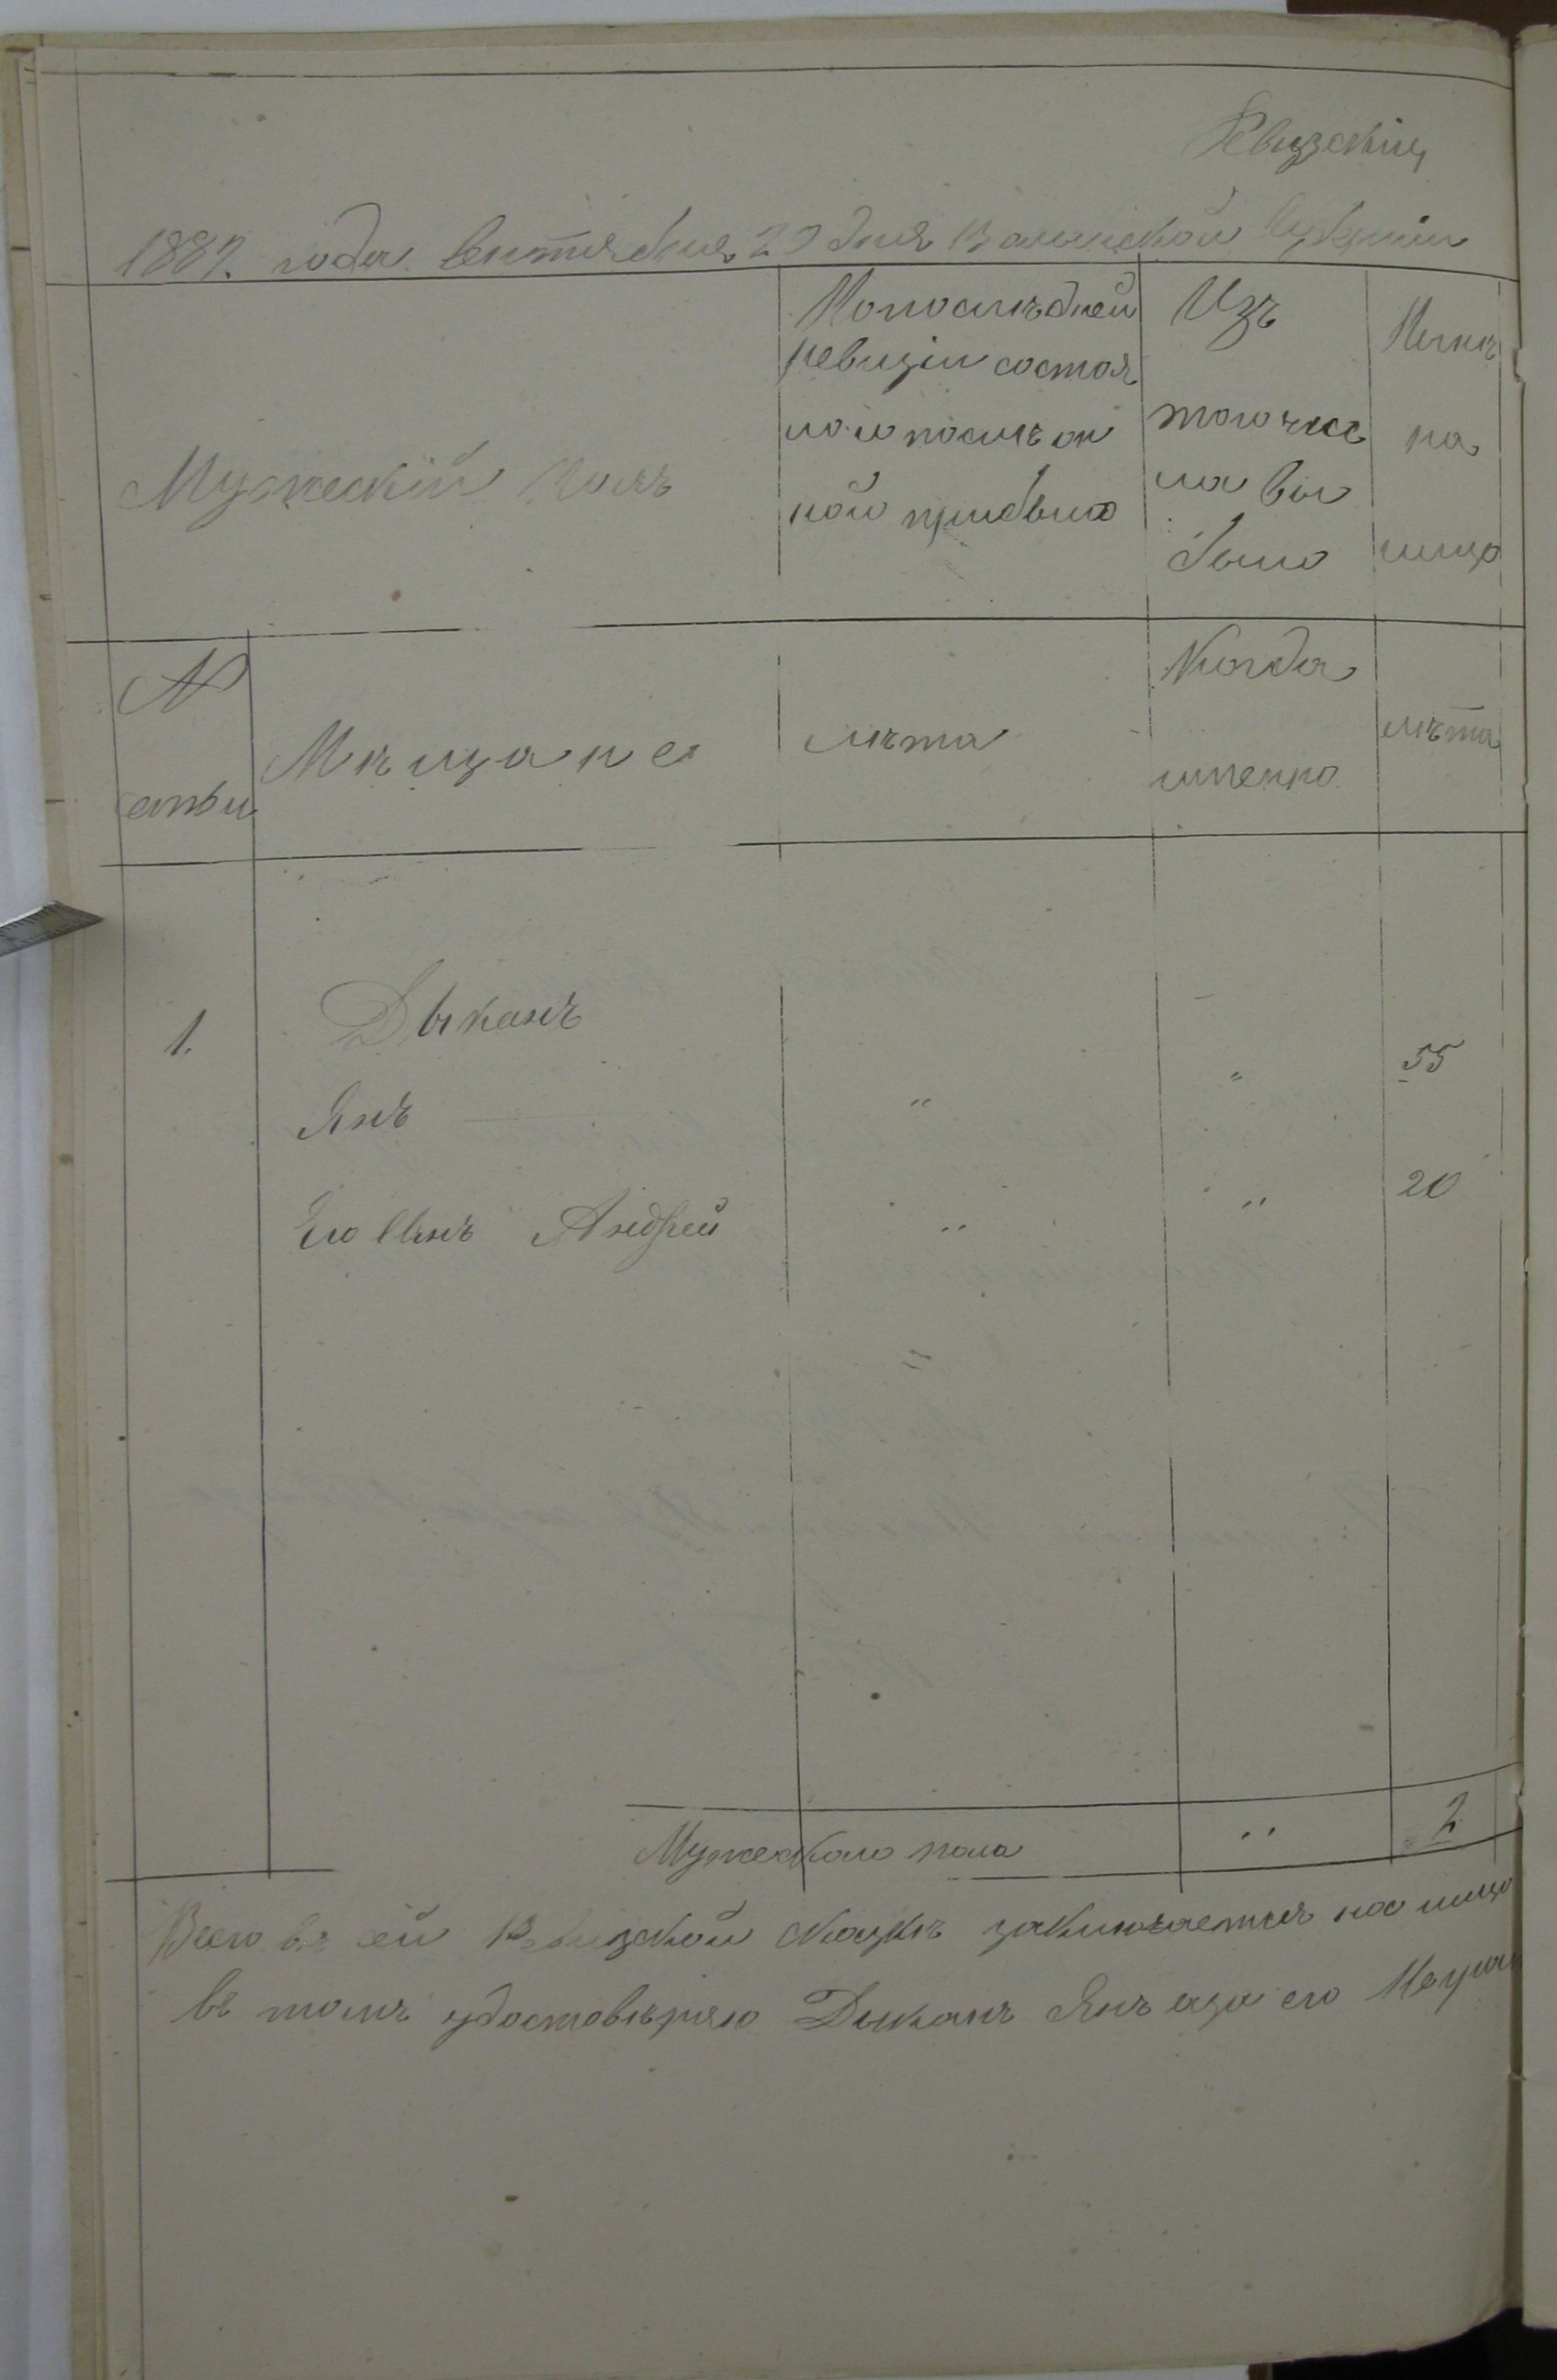 Ревизскїи
1887. года Сентября 29 дня Волынской Губернїи
Мужескїй Полъ
Попослѣдней
ревизїи состоя
ло и послѣ он
ной прибыло
Изъ
того чис
ла вы
было
Нынѣ
на
лицо
№
семьи
Мѣщане
лѣта
Когда
имѣнно
лѣта
1.
Дыканъ
Янъ " " 55
Его Сынъ Андрей " " 20
"
Мужескаго пола " 2
Всего въ сей Ревизской сказкѣ заключается на лицо
въ томъ удостовѣряю Дыканъ Янъ аза его